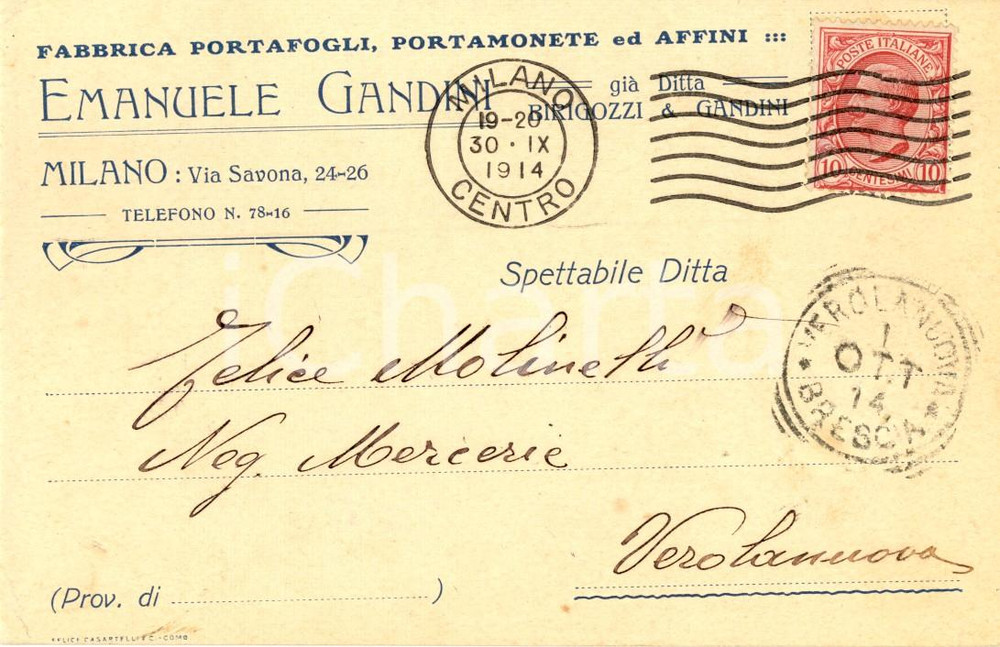 FABBRICA PORTAFOGLI, PORTAMONETE ed AFFINI :::
EMANUELE GANDINI
già Ditta
BIRIGOZZI & GANDINI
MILANO : Via Savona, 24-26
TELEFONO N. 78-16
MILANO
19-20
30 · IX
1914
CENTRO
POSTE ITALIANE
10 CENTESIMI 10
Spettabile Ditta
Felice Molinelli
Neg. Mercerie
Verolanuova
VEROLANUOVA
1
OTT
14
* BRESCIA *
(Prov. di ........................ )
FELICE CASARTELLI E C. - COMO
iCharta